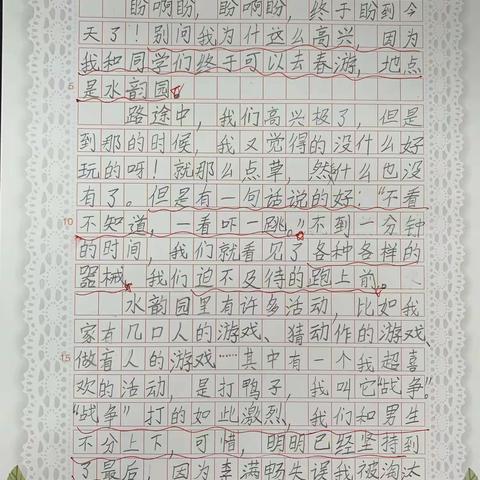 盼啊盼,盼啊盼,终于盼到今
天了!别问我为什这么高兴,因为
我和同学们终于可以去春游,地点
5 是水韵园。
路途中,我们高兴极了,但是
到那的时候,我又觉得的没什么好
玩的呀!就那么点草,然什么也没
有了。但是有一句话说的好:“不看
10 不知道,一看吓一跳。”不到一分钟
的时间,我们就看见了各种各样的
器械。我们迫不及待的跑上前。
水韵园里有许多活动,比如我
家有几口人的游戏、猜动作的游戏、
15 做盲人的游戏……其中有一个我超喜
欢的活动,是打鸭子,我叫它“战争”。
“战争”打的如此激烈,我们和男生
不分上下,可惜,明明已经坚持到
了最后,因为李满畅失误我被淘汰